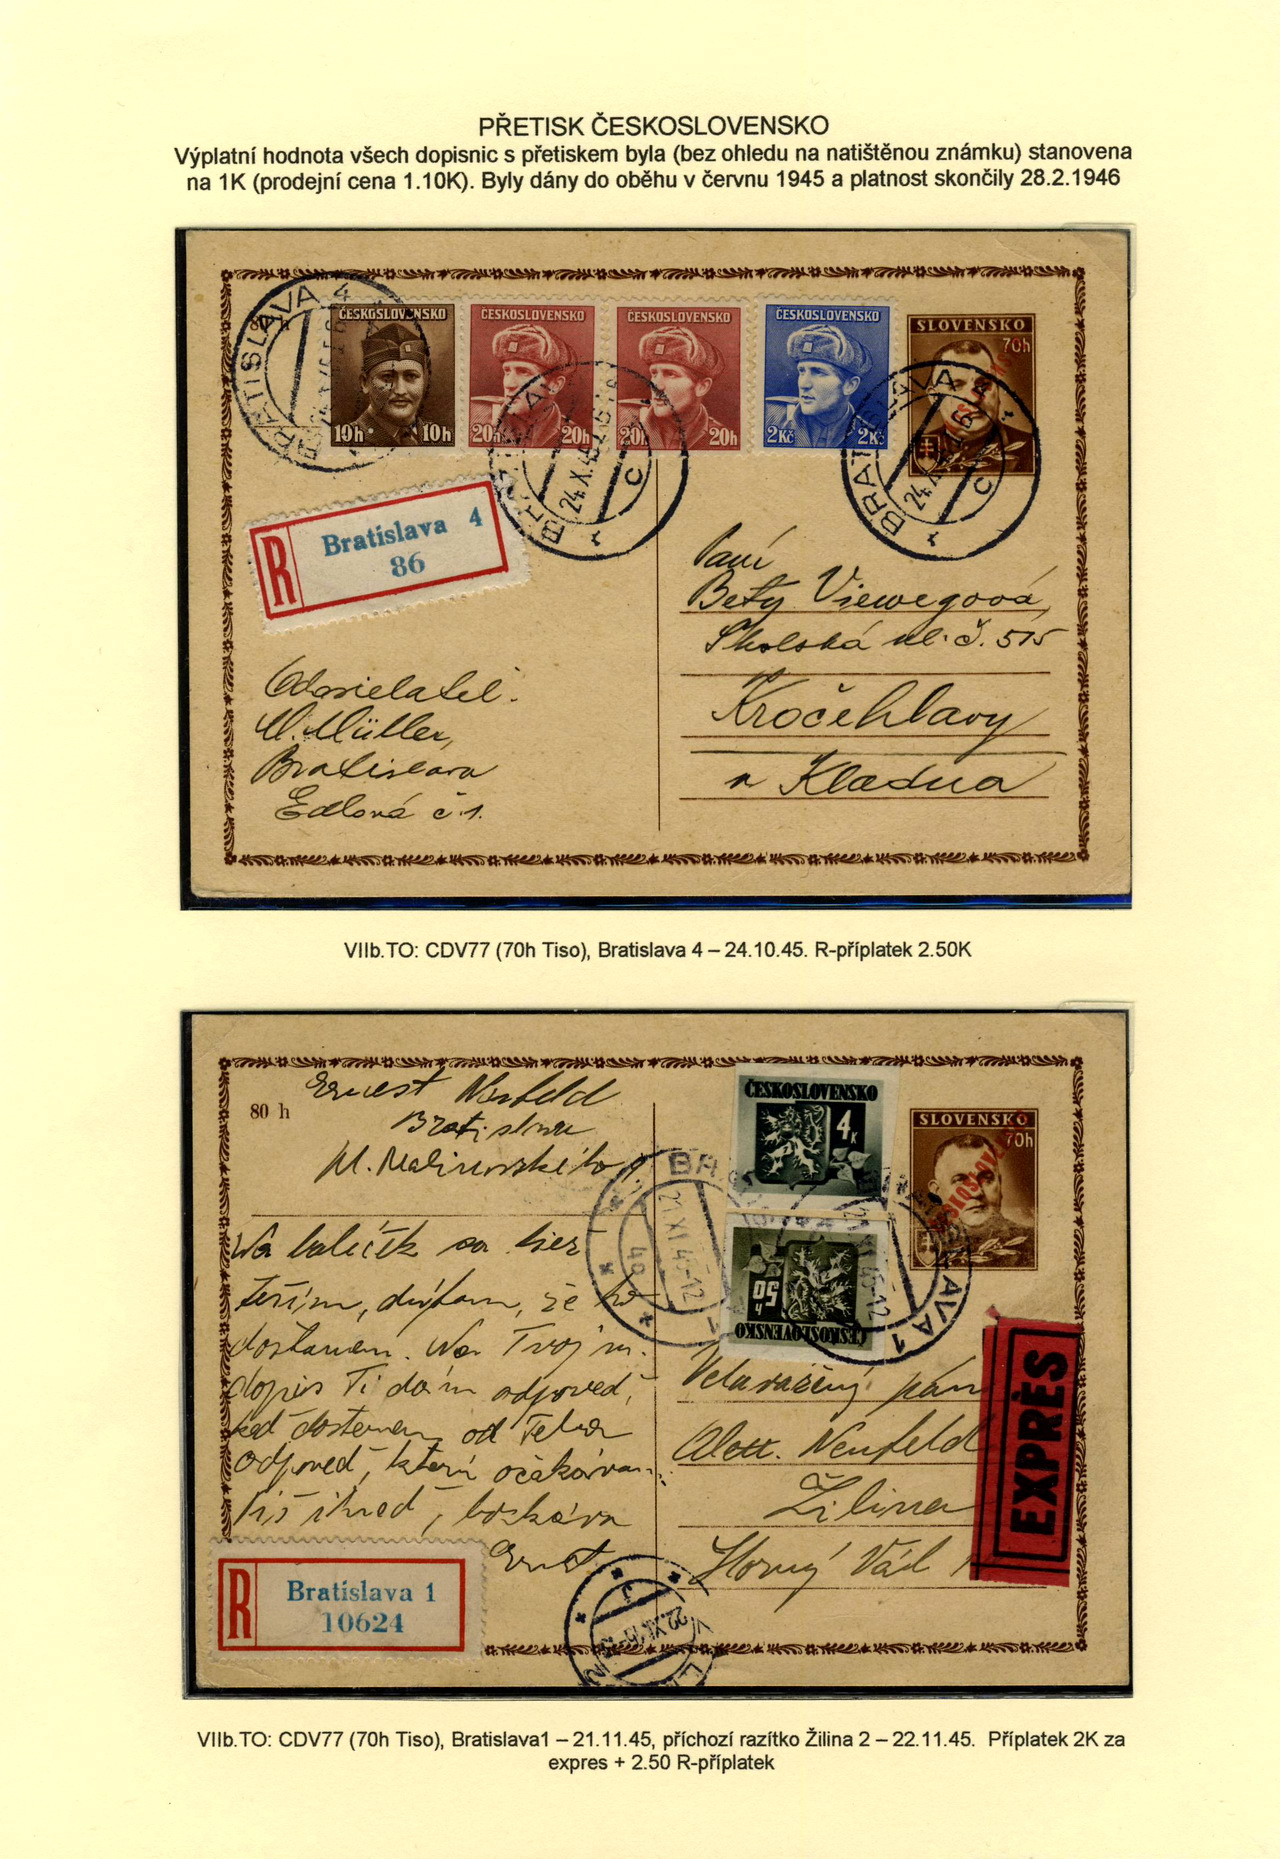 PŘETISK ČESKOSLOVENSKO
Výplatní hodnota všech dopisnic s přetiskem byla (bez ohledu na natištěnou známku) stanovena
na 1K (prodejní cena 1.10K). Byly dány do oběhu v červnu 1945 a platnost skončily 28.2.1946
BRATISLAVA 4
ČESKOSLOVENSKO
10h 10h
ČESKOSLOVENSKO
20h 20h
ČESKOSLOVENSKO
20h 20h
ČESKOSLOVENSKO
2Kč 2Kč
SLOVENSKO
70h
24.X.45
C
BRATISLAVA
24.X
C
R
Bratislava 4
86
Paní
Bety Viewegová
Školská ul. č. 515
Kročehlavy
u Kladna
Odosielateľ.
M. Müller,
Bratislava
Edlová č 1.
VIIb.TO: CDV77 (70h Tiso), Bratislava 4 – 24.10.45. R-příplatek 2.50K
80 h
Ernest Neufeld
Bratislava
M. Malinovského
ČESKOSLOVENSKO
4K
SLOVENSKO
70h
ČESKOSLOVENSKO
21.XI.45-12
4a
1
50h
ČESKOSLOVENSKO
21.XI.45-12
AVA 1
dostanem. Na Tvoj
dopis Ti dám odpoveď,
keď dostanem od Teba
odpoveď, ktorú očakávam
ihneď, bozkáva
Ernest
Velavážený pán
Neufeld
Žilina
Horný Vál
EXPRÈS
R
Bratislava 1
10624
22.XI.45
VIIb.TO: CDV77 (70h Tiso), Bratislava1 – 21.11.45, příchozí razítko Žilina 2 – 22.11.45. Příplatek 2K za
expres + 2.50 R-příplatek